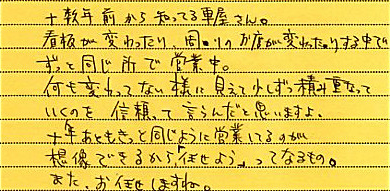 十数年前から知ってる車屋さん。
看板が変わったり、周りのお店が変わったりする中でも
ずっと同じ所で営業中。
何も変わってない様に見えて少しずつ積み重なって
いくのを 信頼って言うんだと思いますよ。
十年あともきっと同じように営業してるのが
想像できるから「任せよう」ってなるもの。
また、お任せしますね。